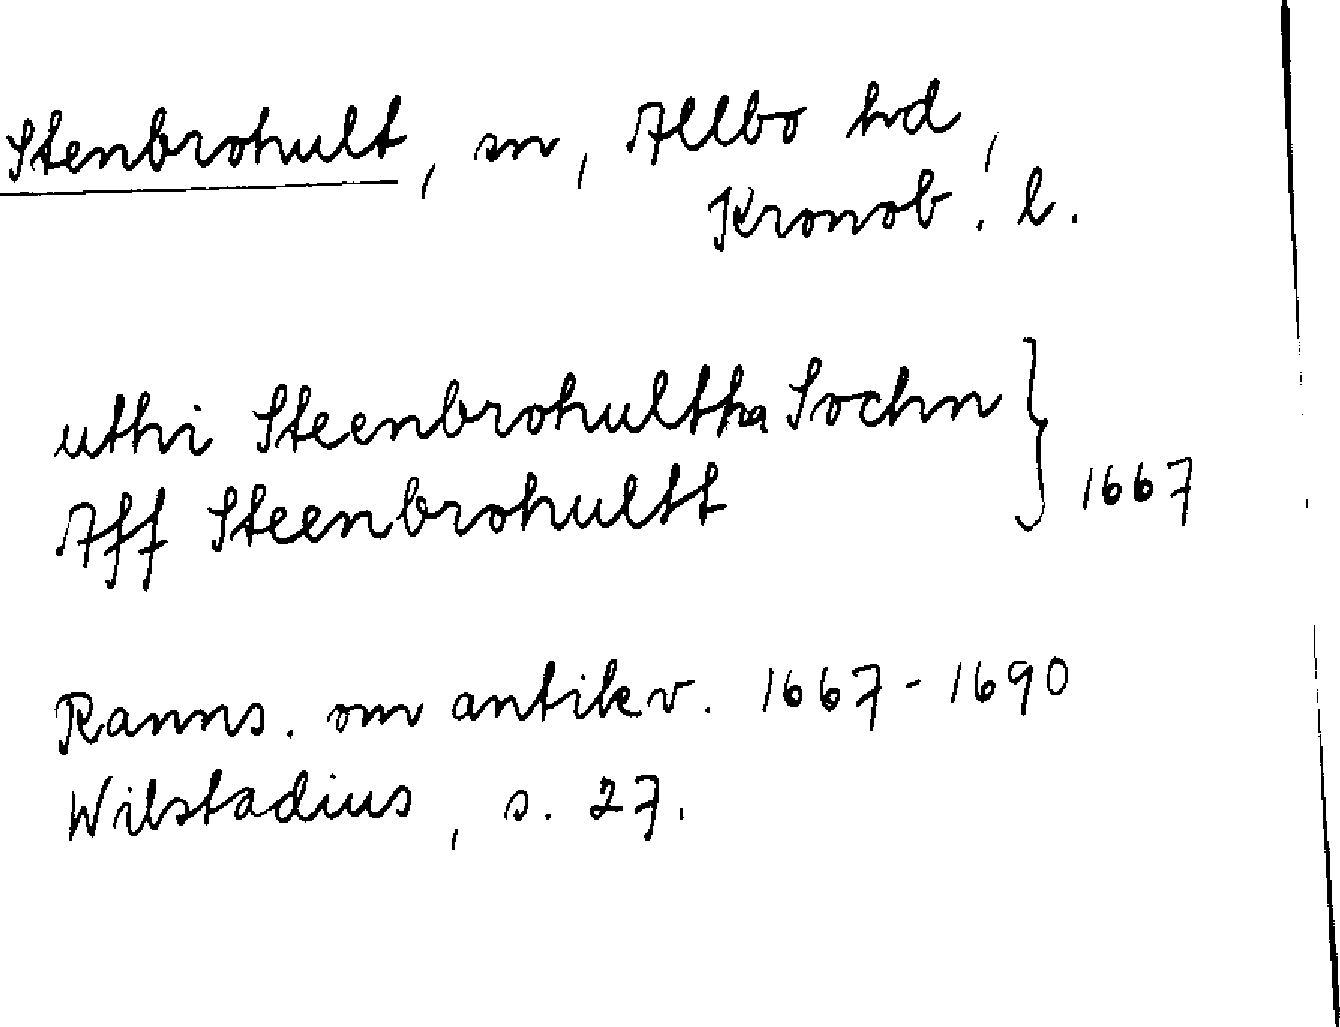 Stenbrohult, sn, Allbo hd,
Kronob. l.
uthi Steenbrohultha Sochn } 1667
Aff Steenbrohultt
Ranns. om antikv. 1667-1690
Wilstadius, s. 27.